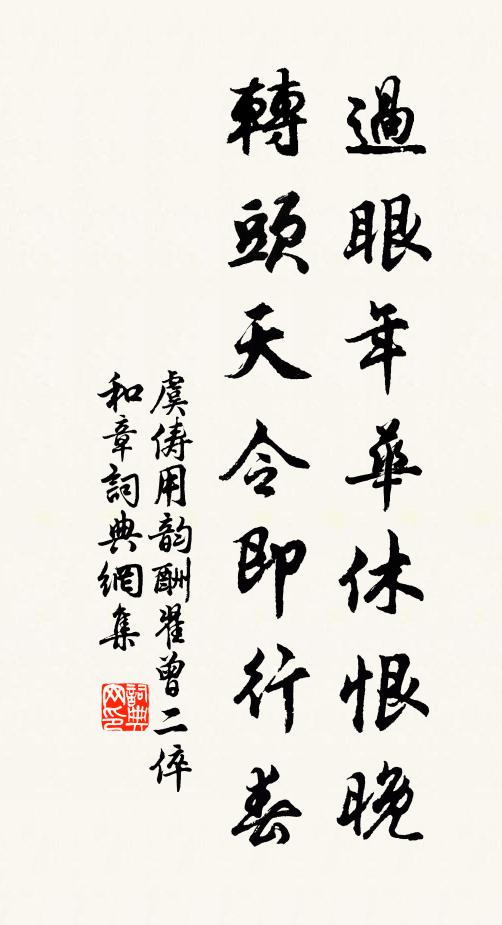 過眼年華休恨晚
轉頭天令即行春
虞儔用韵酬翟曾二倅
和章詞典網集
詞典网印